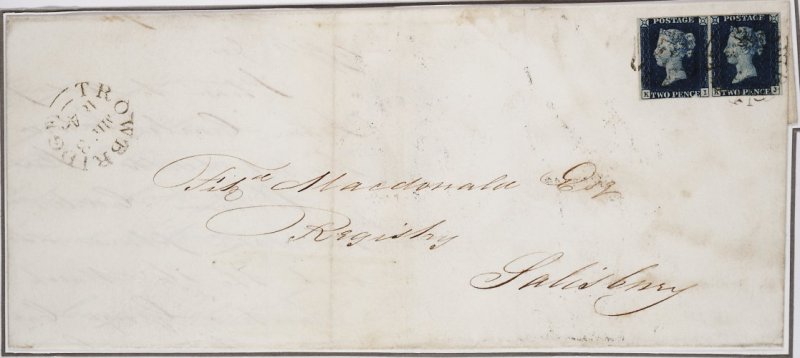 POSTAGE POSTAGE
K I K J
TWO PENCE TWO PENCE
TROWBRIDGE
Fitz Macdonald Esq
Registry
Salisbury